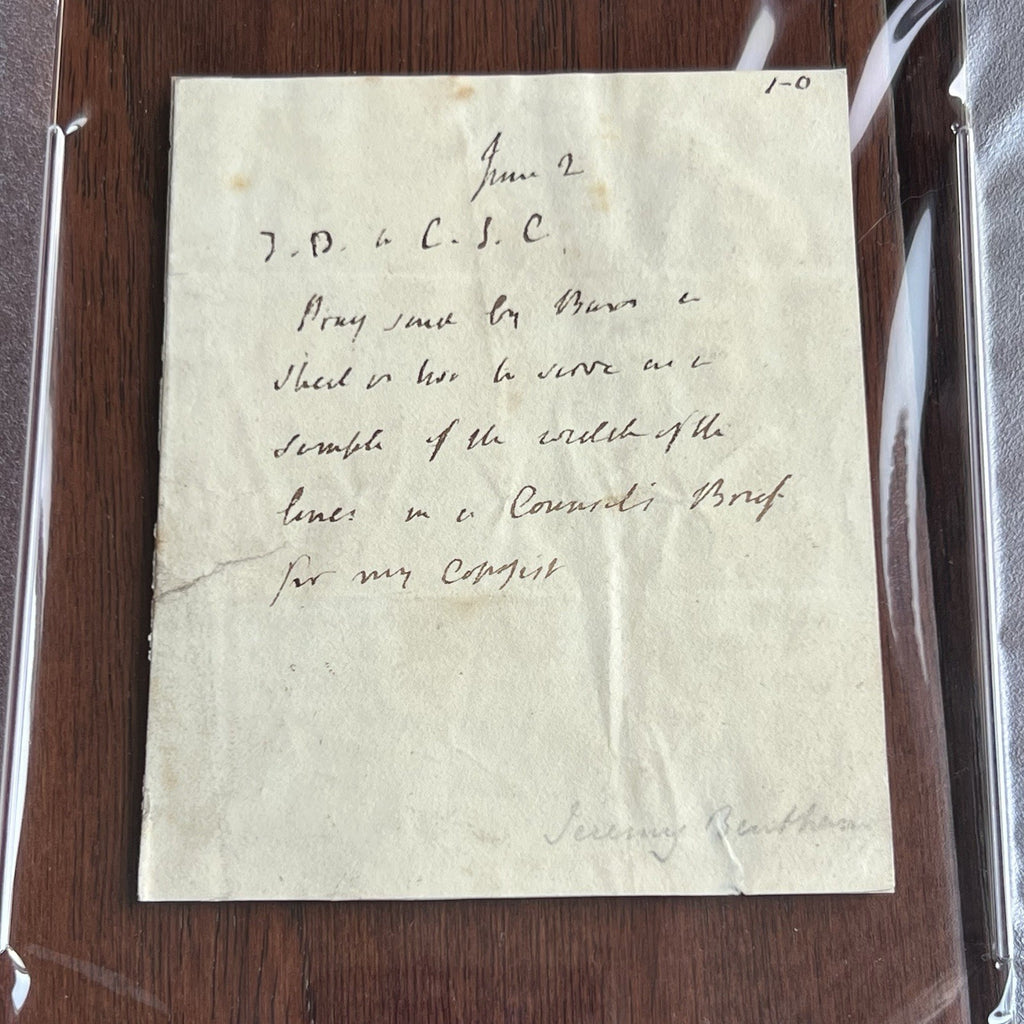 1-0
June 2
J.B. to C.S.C.
Pray send by Bearer a
sheet or two to serve as a
sample of the width of the
lines in a Counsel's Brief
for my Copyist
Jeremy Bentham